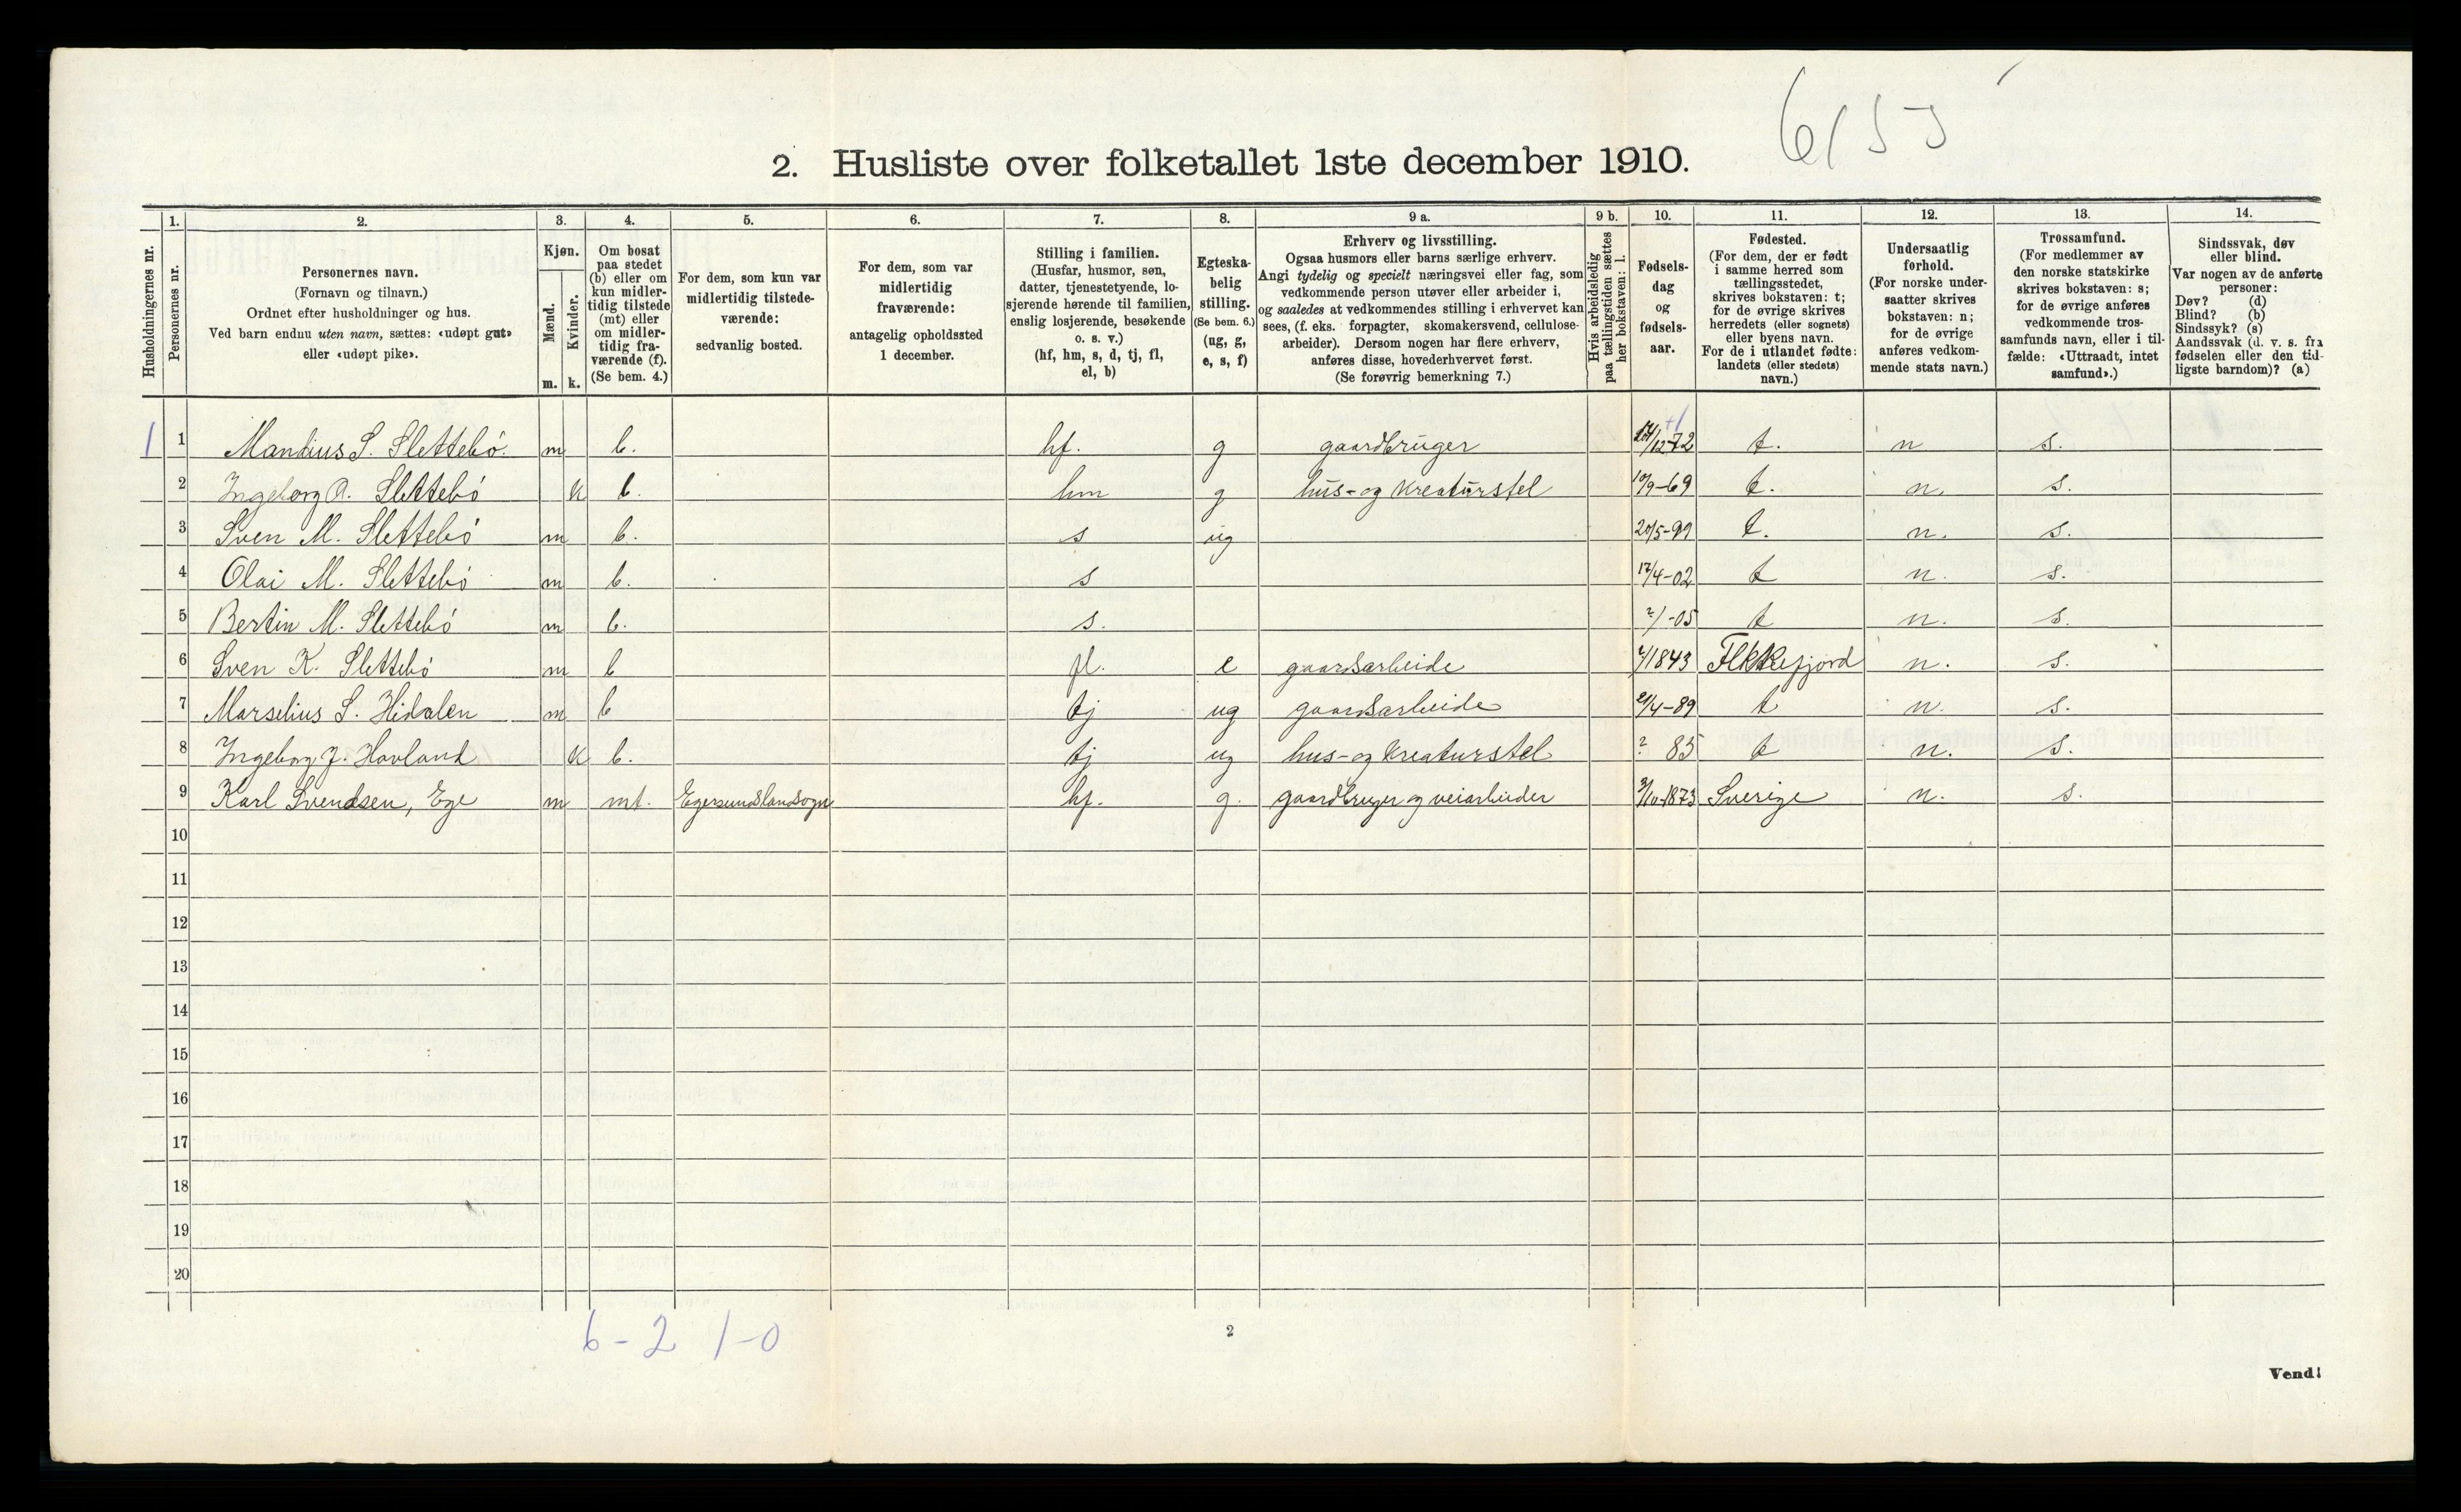 6155
2. Husliste over folketallet 1ste december 1910.
Husholdningernes nr.
1.
Personernes nr.
2.
Personernes navn.
(Fornavn og tilnavn.)
Ordnet efter husholdninger og hus.
Ved barn endnu uten navn, sættes: «udøpt gut»
eller «udøpt pike».
3.
Kjøn.
Mænd.
Kvinder.
m. k.
4.
Om bosat
paa stedet
(b) eller om
kun midler-
tidig tilstede
(mt) eller
om midler-
tidig fra-
værende (f).
(Se bem. 4.)
5.
For dem, som kun var
midlertidig tilstede-
værende:
sedvanlig bosted.
6.
For dem, som var
midlertidig
fraværende:
antagelig opholdssted
1 december.
7.
Stilling i familien.
(Husfar, husmor, søn,
datter, tjenestetyende, lo-
sjerende hørende til familien,
enslig losjerende, besøkende
o. s. v.)
(hf, hm, s, d, tj, fl,
el, b)
8.
Egteska-
belig
stilling.
(Se bem. 6.)
(ug, g,
e, s, f)
9 a.
Erhverv og livsstilling.
Ogsaa husmors eller barns særlige erhverv.
Angi tydelig og specielt næringsvei eller fag, som
vedkommende person utøver eller arbeider i,
og saaledes at vedkommendes stilling i erhvervet kan
sees, (f. eks. forpagter, skomakersvend, cellulose-
arbeider). Dersom nogen har flere erhverv,
anføres disse, hovederhvervet først.
(Se forøvrig bemerkning 7.)
9 b.
Hvis arbeidsledig
paa tællingstiden sættes
her bokstaven: l.
10.
Fødsels-
dag
og
fødsels-
aar.
11.
Fødested.
(For dem, der er født
i samme herred som
tællingsstedet,
skrives bokstaven: t;
for de øvrige skrives
herredets (eller sognets)
eller byens navn.
For de i utlandet fødte:
landets (eller stedets)
navn.)
12.
Undersaatlig
forhold.
(For norske under-
saatter skrives
bokstaven: n;
for de øvrige
anføres vedkom-
mende stats navn.)
13.
Trossamfund.
(For medlemmer av
den norske statskirke
skrives bokstaven: s;
for de øvrige anføres
vedkommende tros-
samfunds navn, eller i til-
fælde: «Uttraadt, intet
samfund».)
14.
Sindssvak, døv
eller blind.
Var nogen av de anførte
personer:
Døv? (d)
Blind? (b)
Sindssyk? (s)
Aandssvak (d. v. s. fra
fødselen eller den tid-
ligste barndom)? (a)
1 1 Mandius S. Slettebó. m b. hf. g gaardbruger /12-72 t. n s.
2 Ingeborg O. Slettebó k b. hm g hus- og kreaturstel 10/9-69 t. n. s.
3 Sven M. Slettebó m b. s ug 20/5-99 t. n. s.
4 Olai M. Slettebó m b. s 17/4-02 t n. s.
5 Bertin M. Slettebó m b. s. ?/-05 t n. s.
6 Sven K. Slettebó m b fl. e gaardsarbeide 1843 Flekkefjord n. s.
7 Marselius S. Hidalen m b tj ug gaardsarbeide 21/4-89 t n. s.
8 Ingeborg J. Hovland k b. tj ug hus- og kreaturstel ? 85 t n. s.
9 Karl Svendsen, Ege m mt. Egersundslandsogn hf. g. gaardbruger og veiarbeider 3/10-1873 Sverige n. s.
10
11
12
13
14
15
16
17
18
19
20
6-2 1-0
2
Vend!